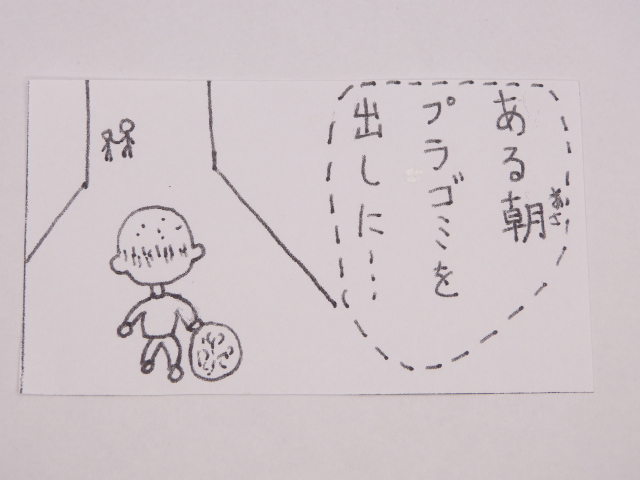 ある朝
あさ
プラゴミを
出した…